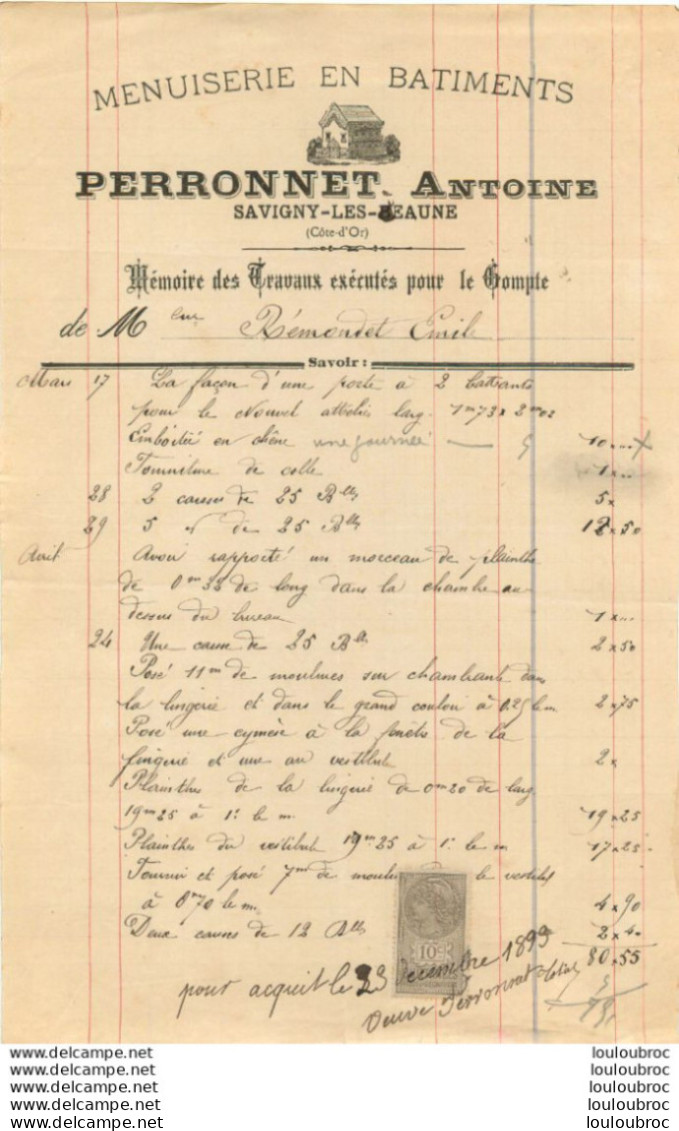 MENUISERIE EN BATIMENTS
PERRONNET Antoine
SAVIGNY-LES-BEAUNE
(Côte-d'Or)
Mémoire des Travaux exécutés pour le Compte
de M eur Rémondet Emile
Savoir :
Mars 17 La façon d'une porte à 2 battants
pour le Nouvel larg. 1m73 x 2m02
Emboitée en chêne une journée — 5 10 x ...
Fourniture de colle 1 x ...
28 2 caisses de 25 Blles 5 x
29 5 de 25 Blles 12 x 50
Avril Avoir rapporté un morceau de plainthe
de 0m38 de long dans la chambre au
dessus du bureau 1 x ...
24 Une caisse de 25 Blles 2 x 50
Posé 11m de moulures sur chambrante dans
la lingerie et dans le grand couloir à 0.25 le m. 2 x 75
Posé une cymèse à la de la
lingerie et une au vestibule 2 x
Plainthes de la lingerie de 0m20 de larg.
19m25 à 1f le m. 19 x 25
Plainthes du vestibule 19m25 à 1f le m 17 x 25
Fourni et posé 7m de le vestibule
à 0f70 le m. 4 x 90
Deux caisses de 12 Blles 2 x 40
80 x 55
10c
pour acquit le 23 décembre 1899
Veuve Perronnet
5
75
www.delcampe.net louloubroc
www.delcampe.net louloubroc
www.delcampe.net louloubroc
www.delcampe.net louloubroc
www.delcampe.net louloubroc